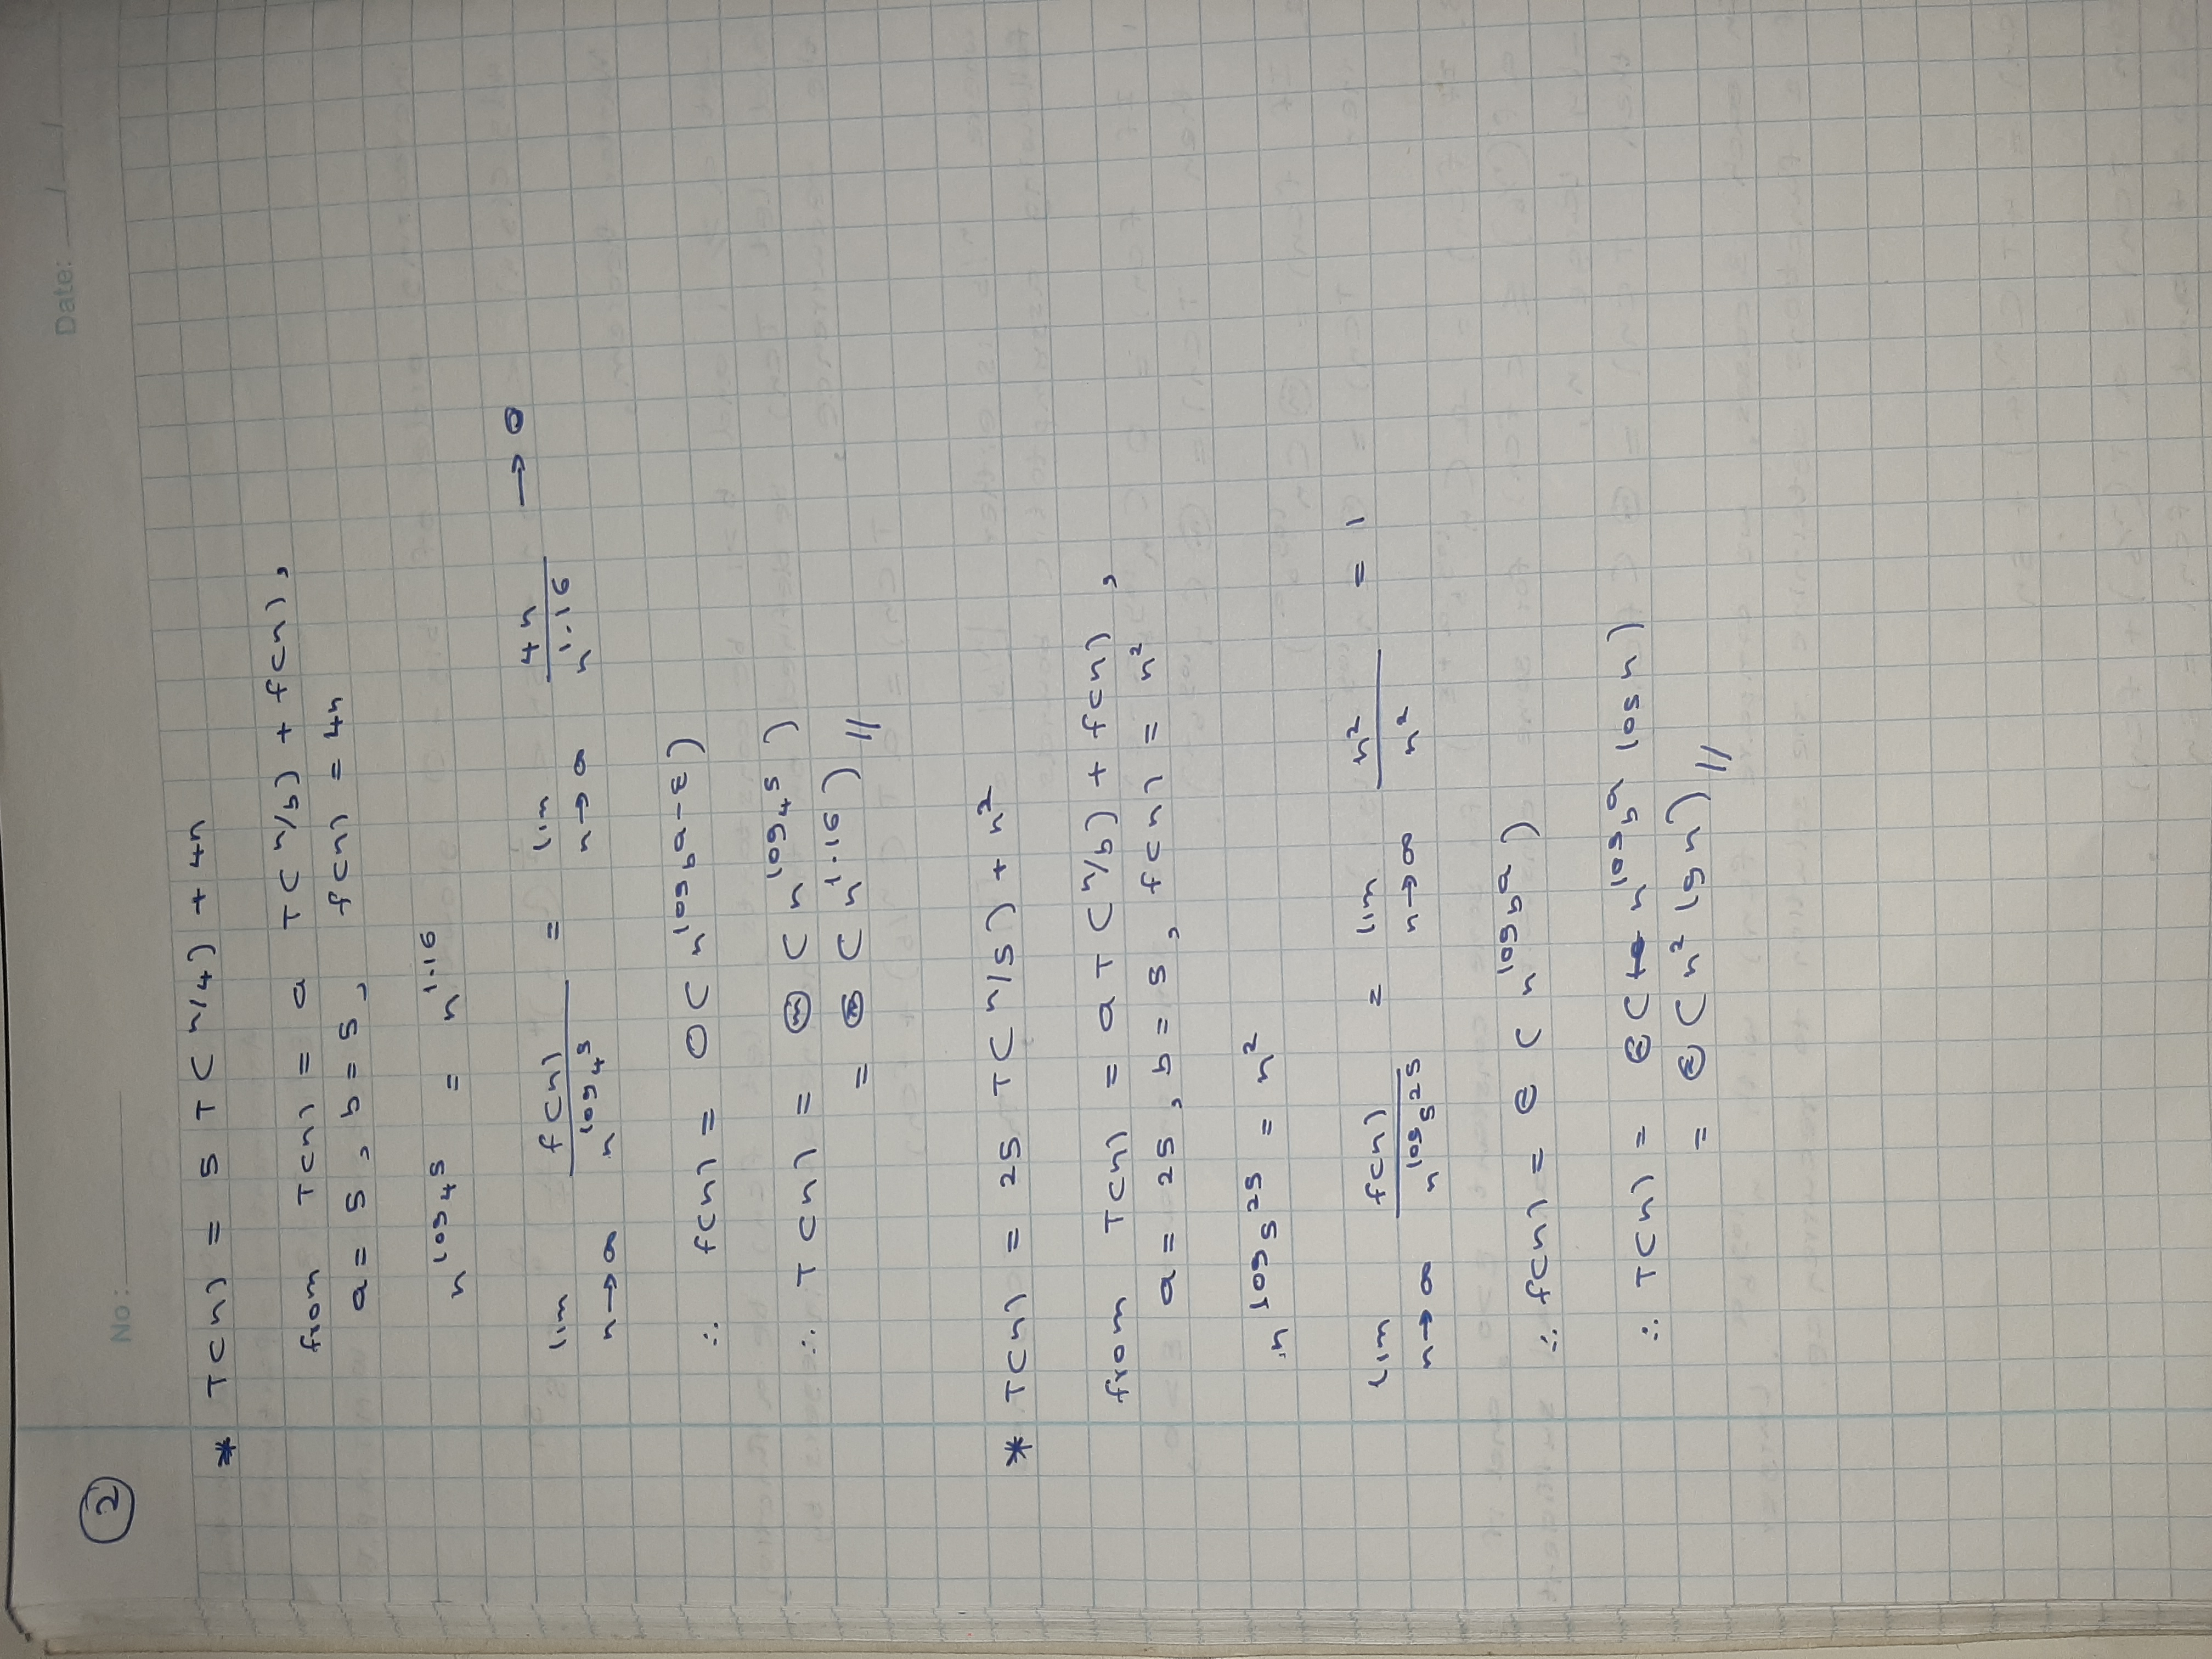 2
No :
Date: / /
* T(n) = 5 T(n/4) + 4n
from T(n) = a T(n/b) + f(n),
a = 5, b = 5, f(n) = 4n
n^log₄5 = n^1.16
lim n→∞ f(n) / n^log₄5 = lim n→∞ 4n / n^1.16 → 0
∴ f(n) = O(n^log_b a-ε)
∴ T(n) = Θ(n^log₄5)
= Θ(n^1.16) //
* T(n) = 25 T(n/5) + n²
from T(n) = a T(n/b) + f(n),
a = 25, b = 5, f(n) = n²
n^log₅25 = n²
lim n→∞ f(n) / n^log₅25 = lim n→∞ n² / n² = 1
∴ f(n) = Θ(n^log_b a)
∴ T(n) = Θ(n^log_b a log n)
= Θ(n² lgn) //